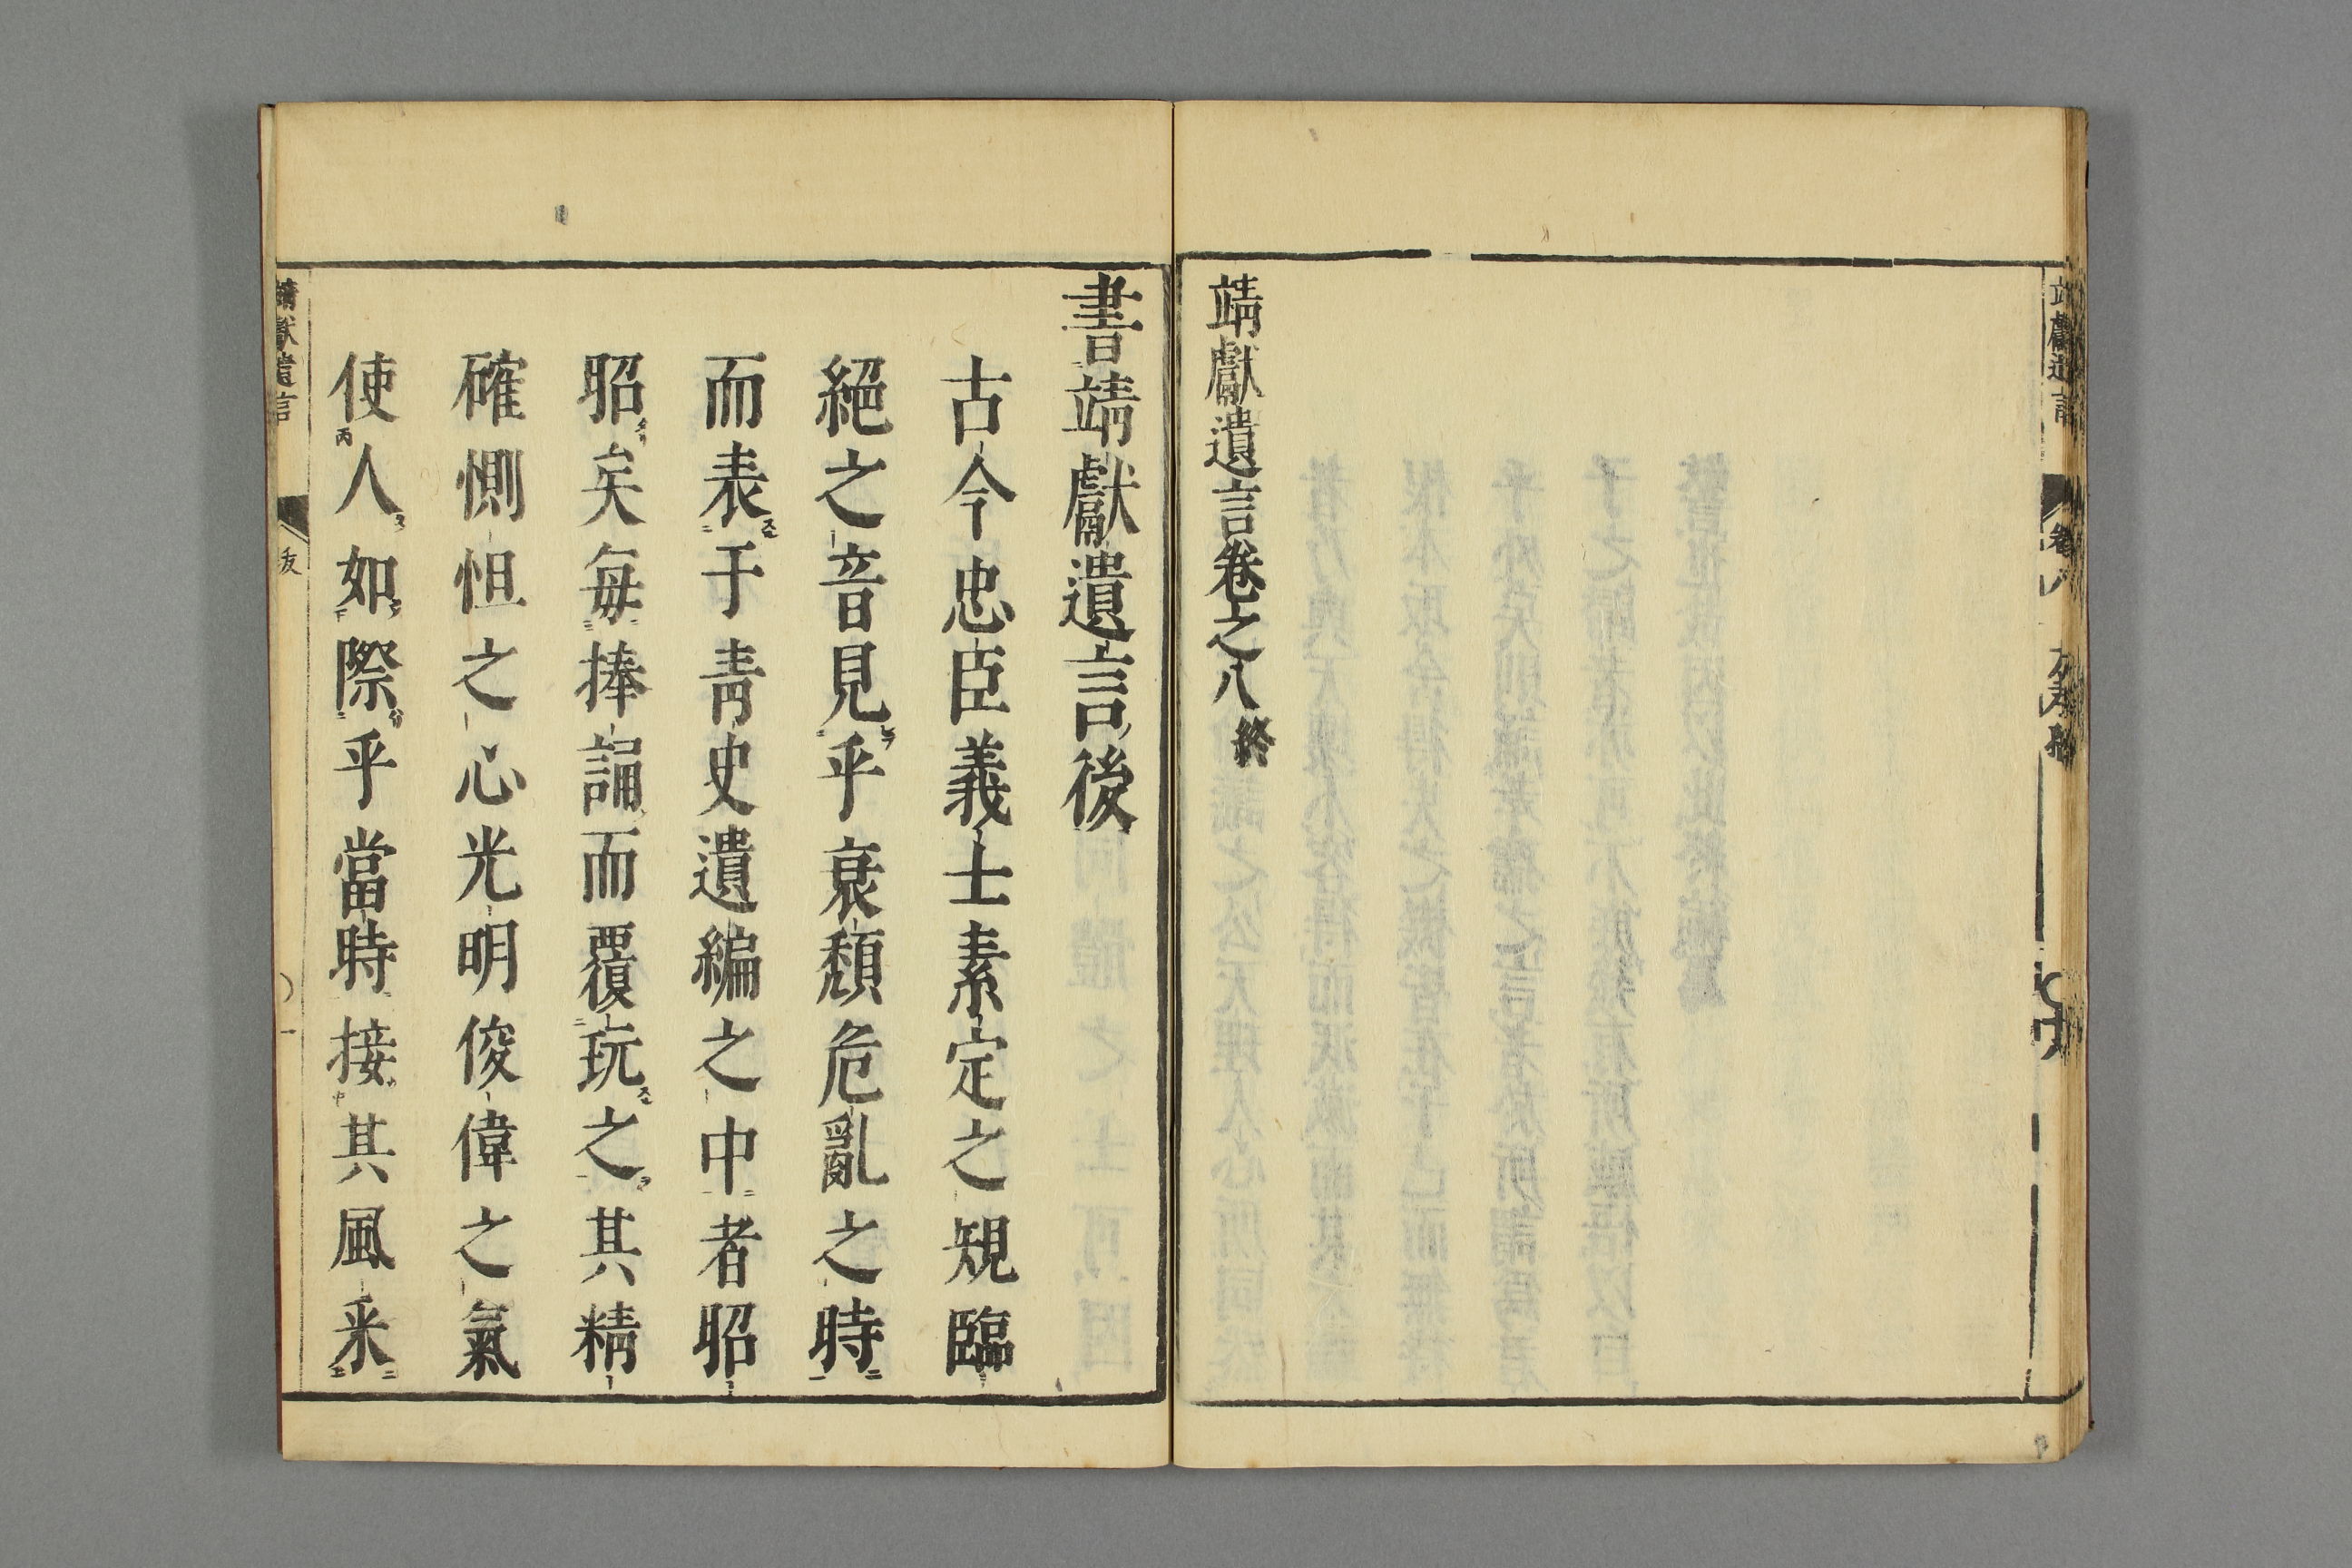 靖獻遺言卷之八終
書靖獻遺言後
古今忠臣義士素定之規臨
絕之音見乎衰頹危亂之時
而表于靑史遺編之中者昭
昭矣每捧誦而覆玩之其精
確惻怛之心光明俊偉之氣
使人如際乎當時接其風采
靖獻遺言